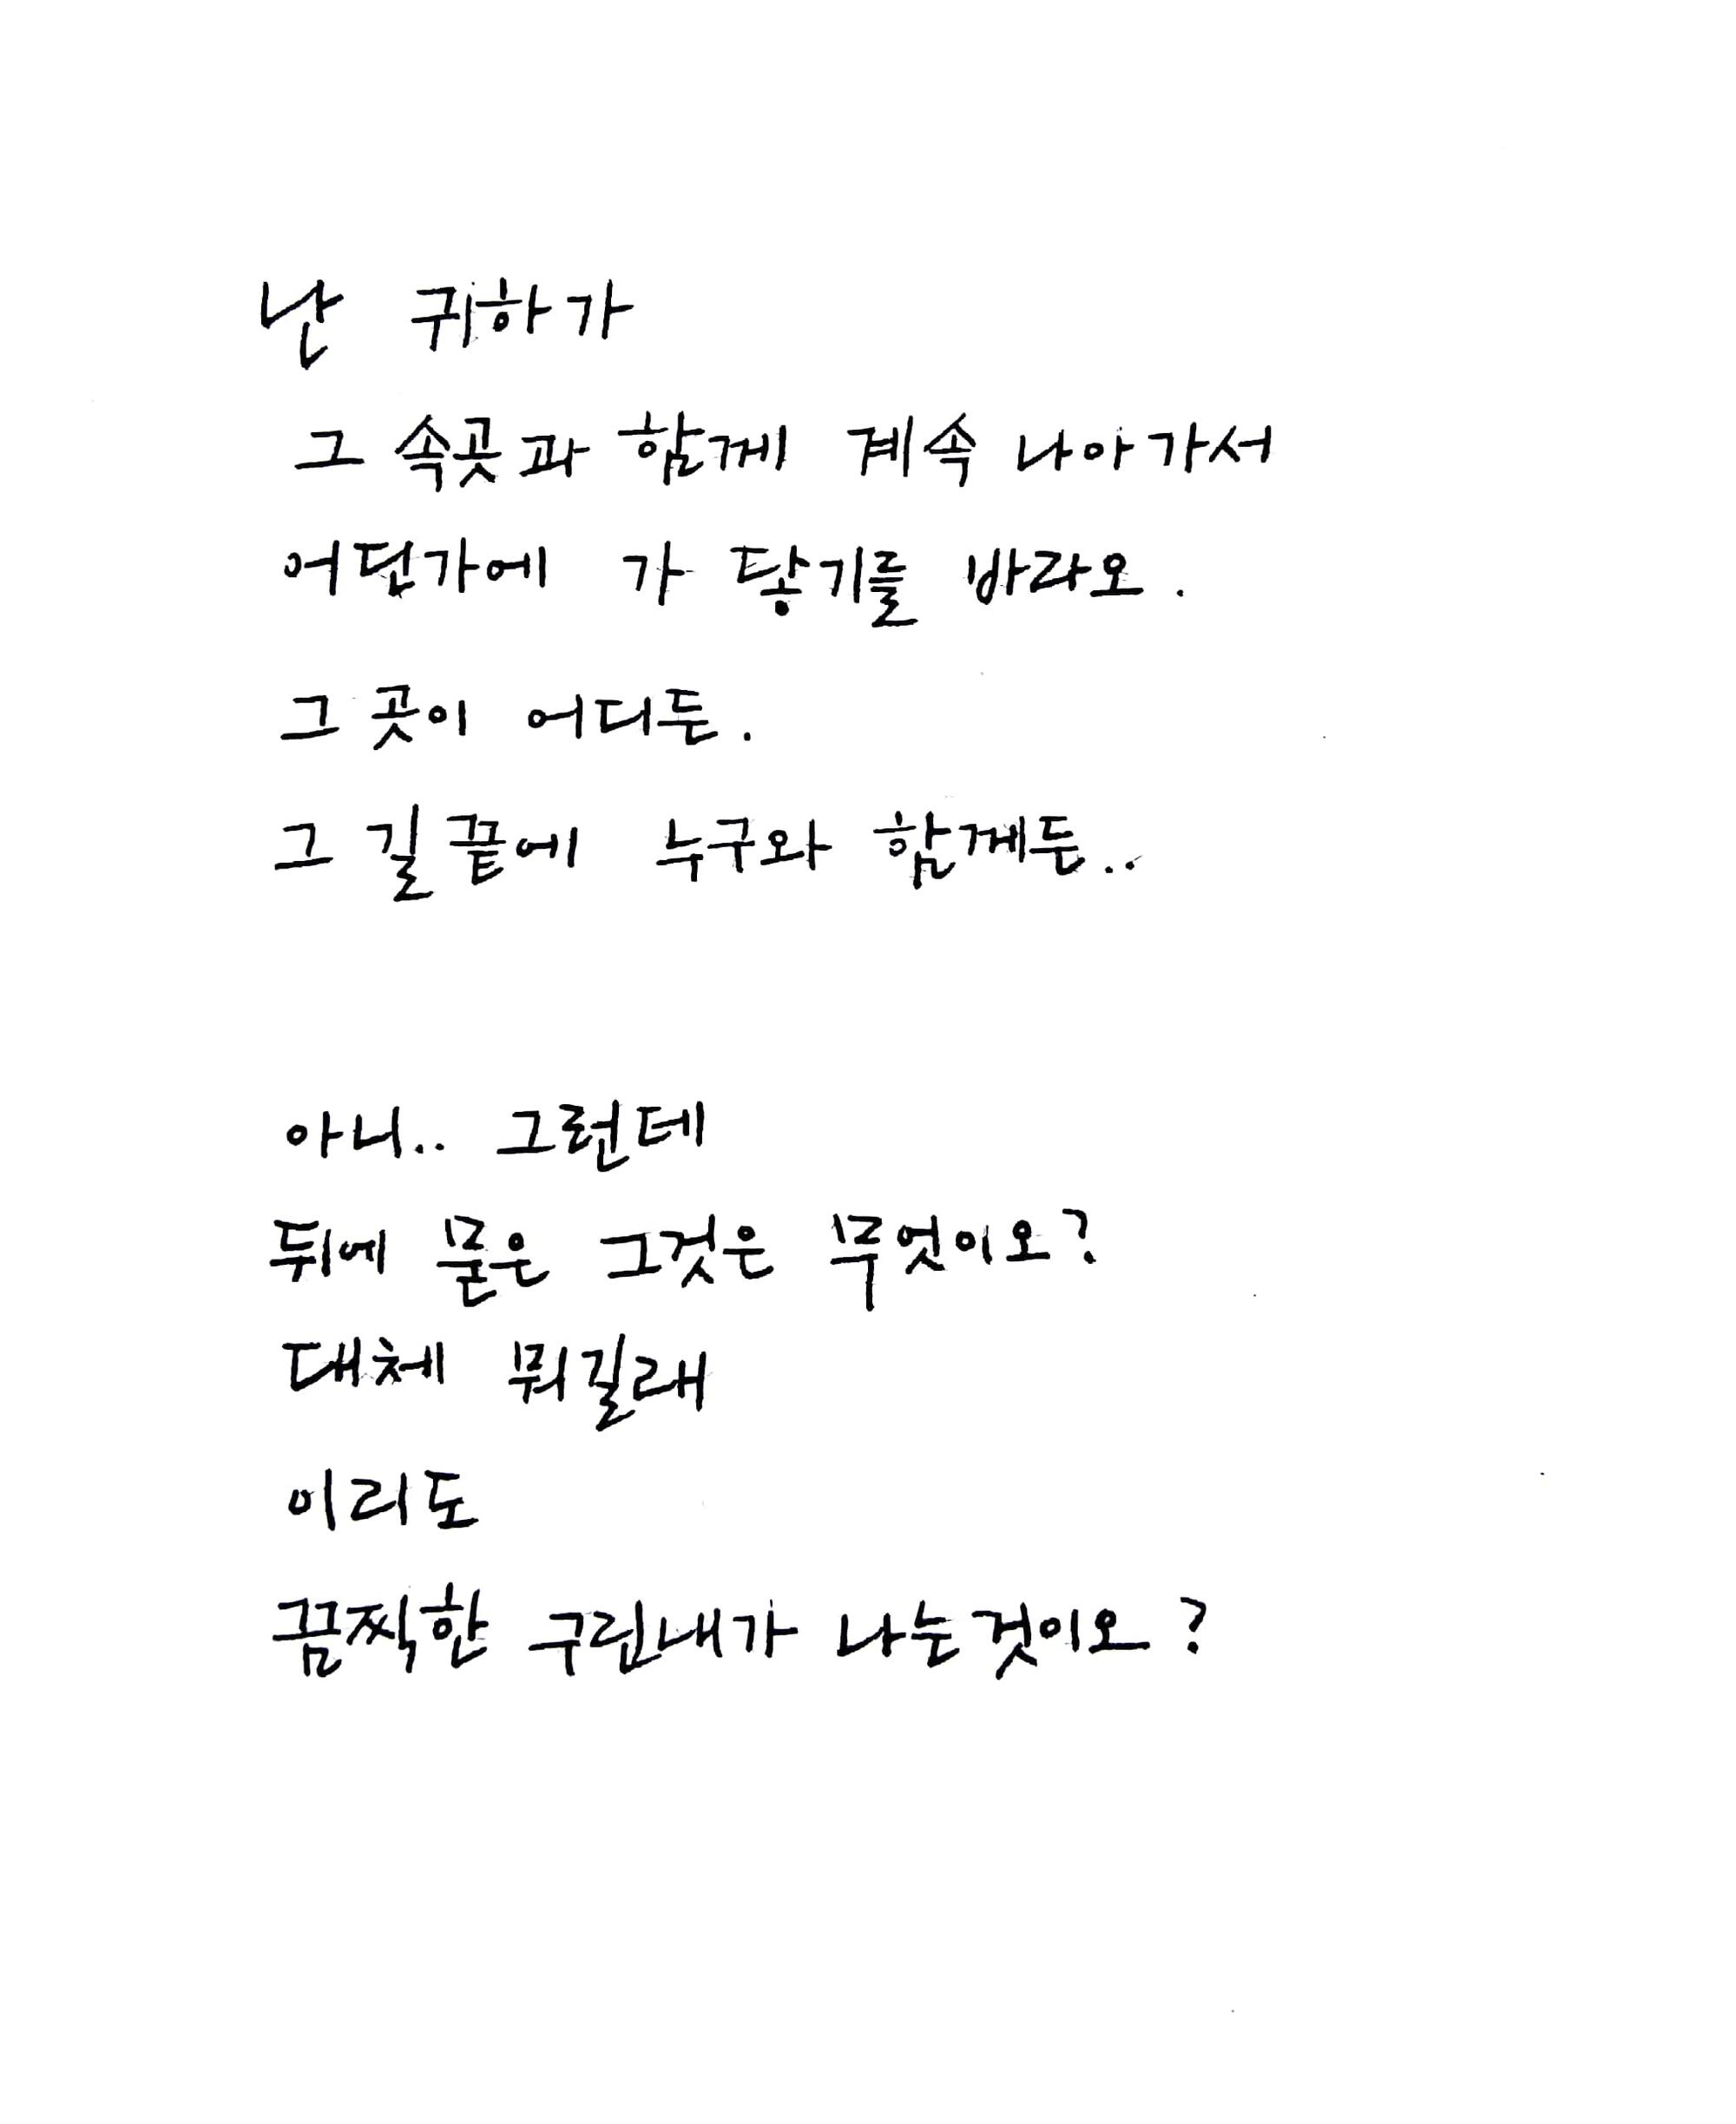 난 귀하가
그 속곳과 함께 계속 나아가서
어딘가에 가 닿기를 바라오.
그 곳이 어디든.
그 길 끝에 누구와 함께든..
아니.. 그런데
뒤에 묻은 그것은 무엇이오?
대체 뭐길래
이리도
끔찍한 구린내가 나는것이오?